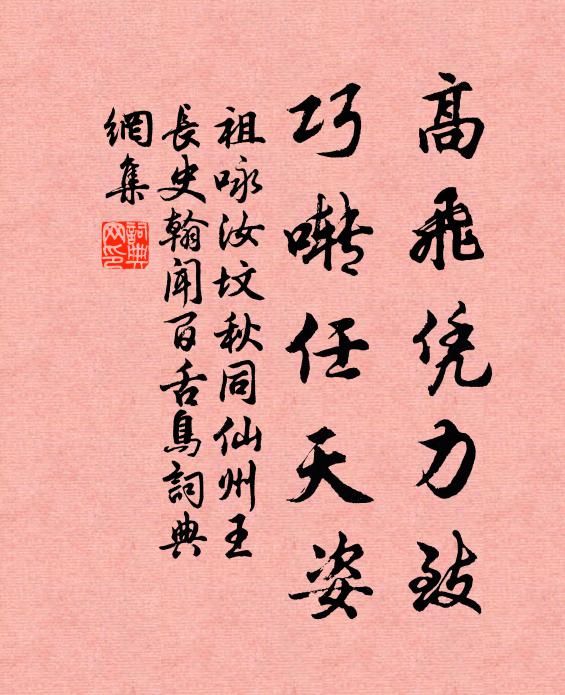 高飛凭力致
巧囀任天姿
祖咏汝坟秋同仙州王
長史翰闻百舌鳥詞典
網集
詞典
网印